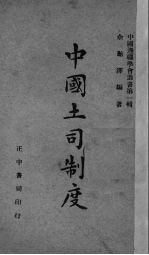 中國邊疆學會叢書第一輯
佘貽澤編著
中國土司制度
正中書局印行